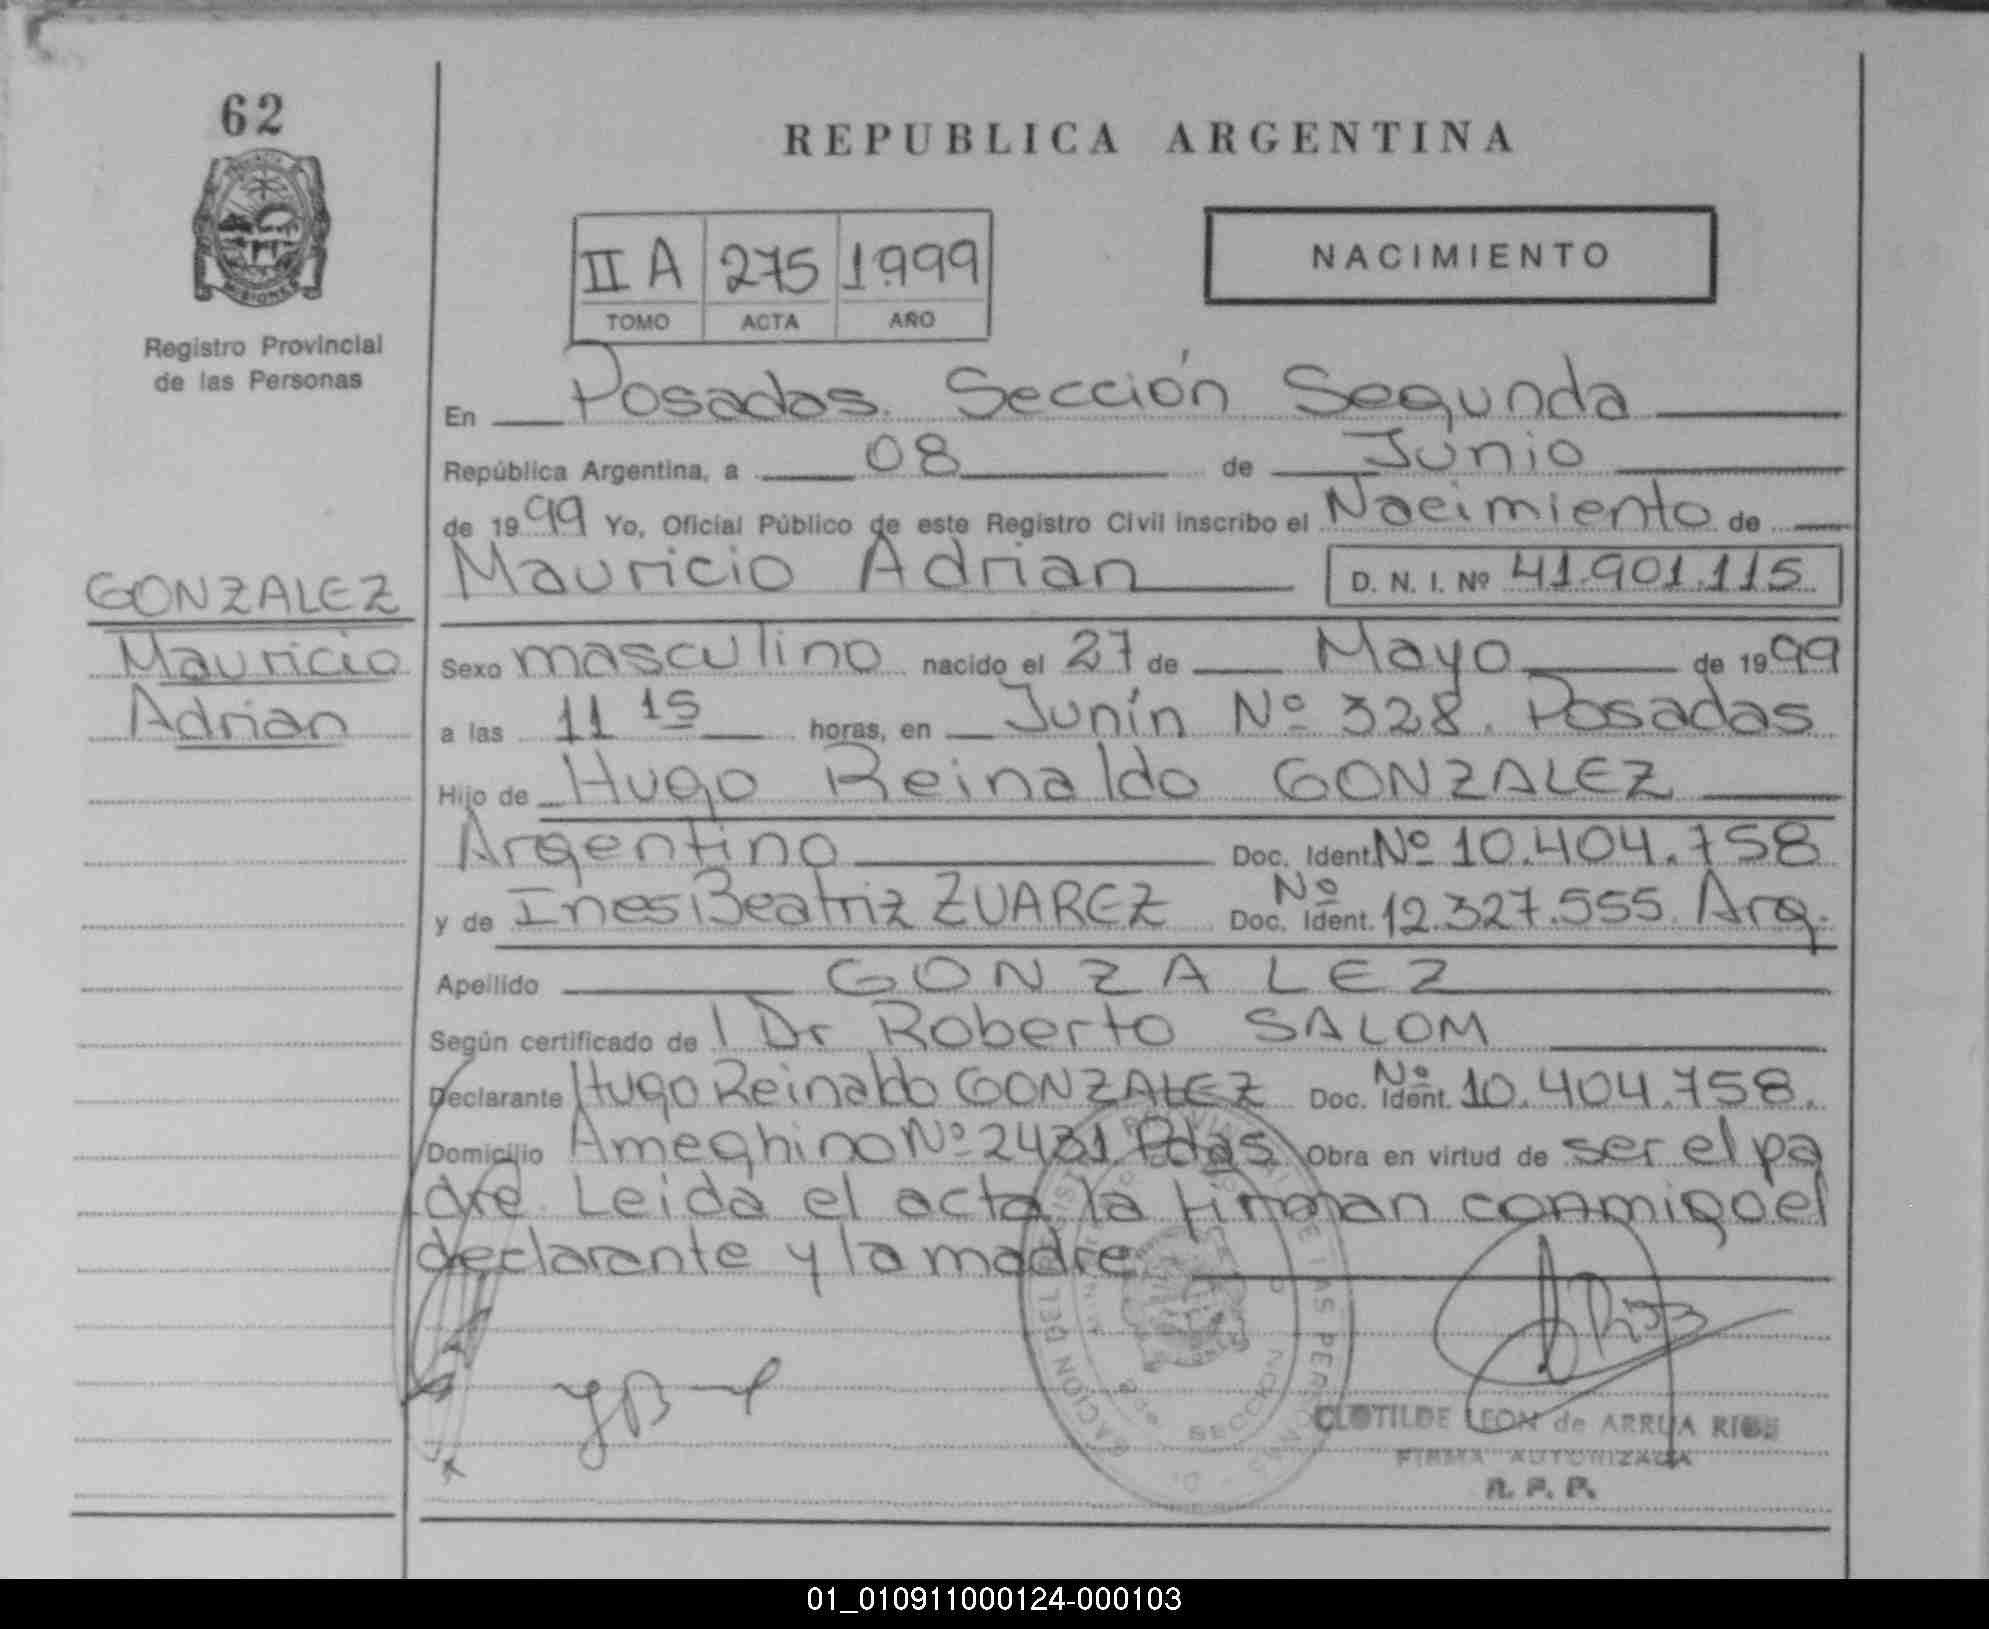 62
MISIONES
Registro Provincial
de las Personas
REPUBLICA ARGENTINA
II A 275 1.999
TOMO ACTA AÑO
NACIMIENTO
En Posadas. Sección Segunda
República Argentina, a 08 de Junio
de 1999 Yo, Oficial Público de este Registro Civil inscribo el Nacimiento de
Mauricio Adrian D. N. I. Nº 41.901.115
GONZALEZ
Mauricio
Adrian
Sexo masculino nacido el 27 de Mayo de 1999
a las 11 15 horas, en Junín Nº 328. Posadas
Hijo de Hugo Reinaldo GONZALEZ
Argentino Doc. Ident. Nº 10.404.758
y de Ines Beatriz ZUAREZ Doc. Ident. Nº 12.327.555. Arg.
Apellido GONZALEZ
Según certificado de l Dr Roberto SALOM
Declarante Hugo Reinaldo GONZALEZ Doc. Ident. Nº 10.404.758.
Domicilio Ameghino Nº 2431. Pdas Obra en virtud de ser el pa
dre. Leida el acta la firman conmigo el
declarante y la madre
SECCION
CLOTILDE LEON de ARRUA RIOS
FIRMA AUTORIZADA
R. P. P.
01_010911000124-000103